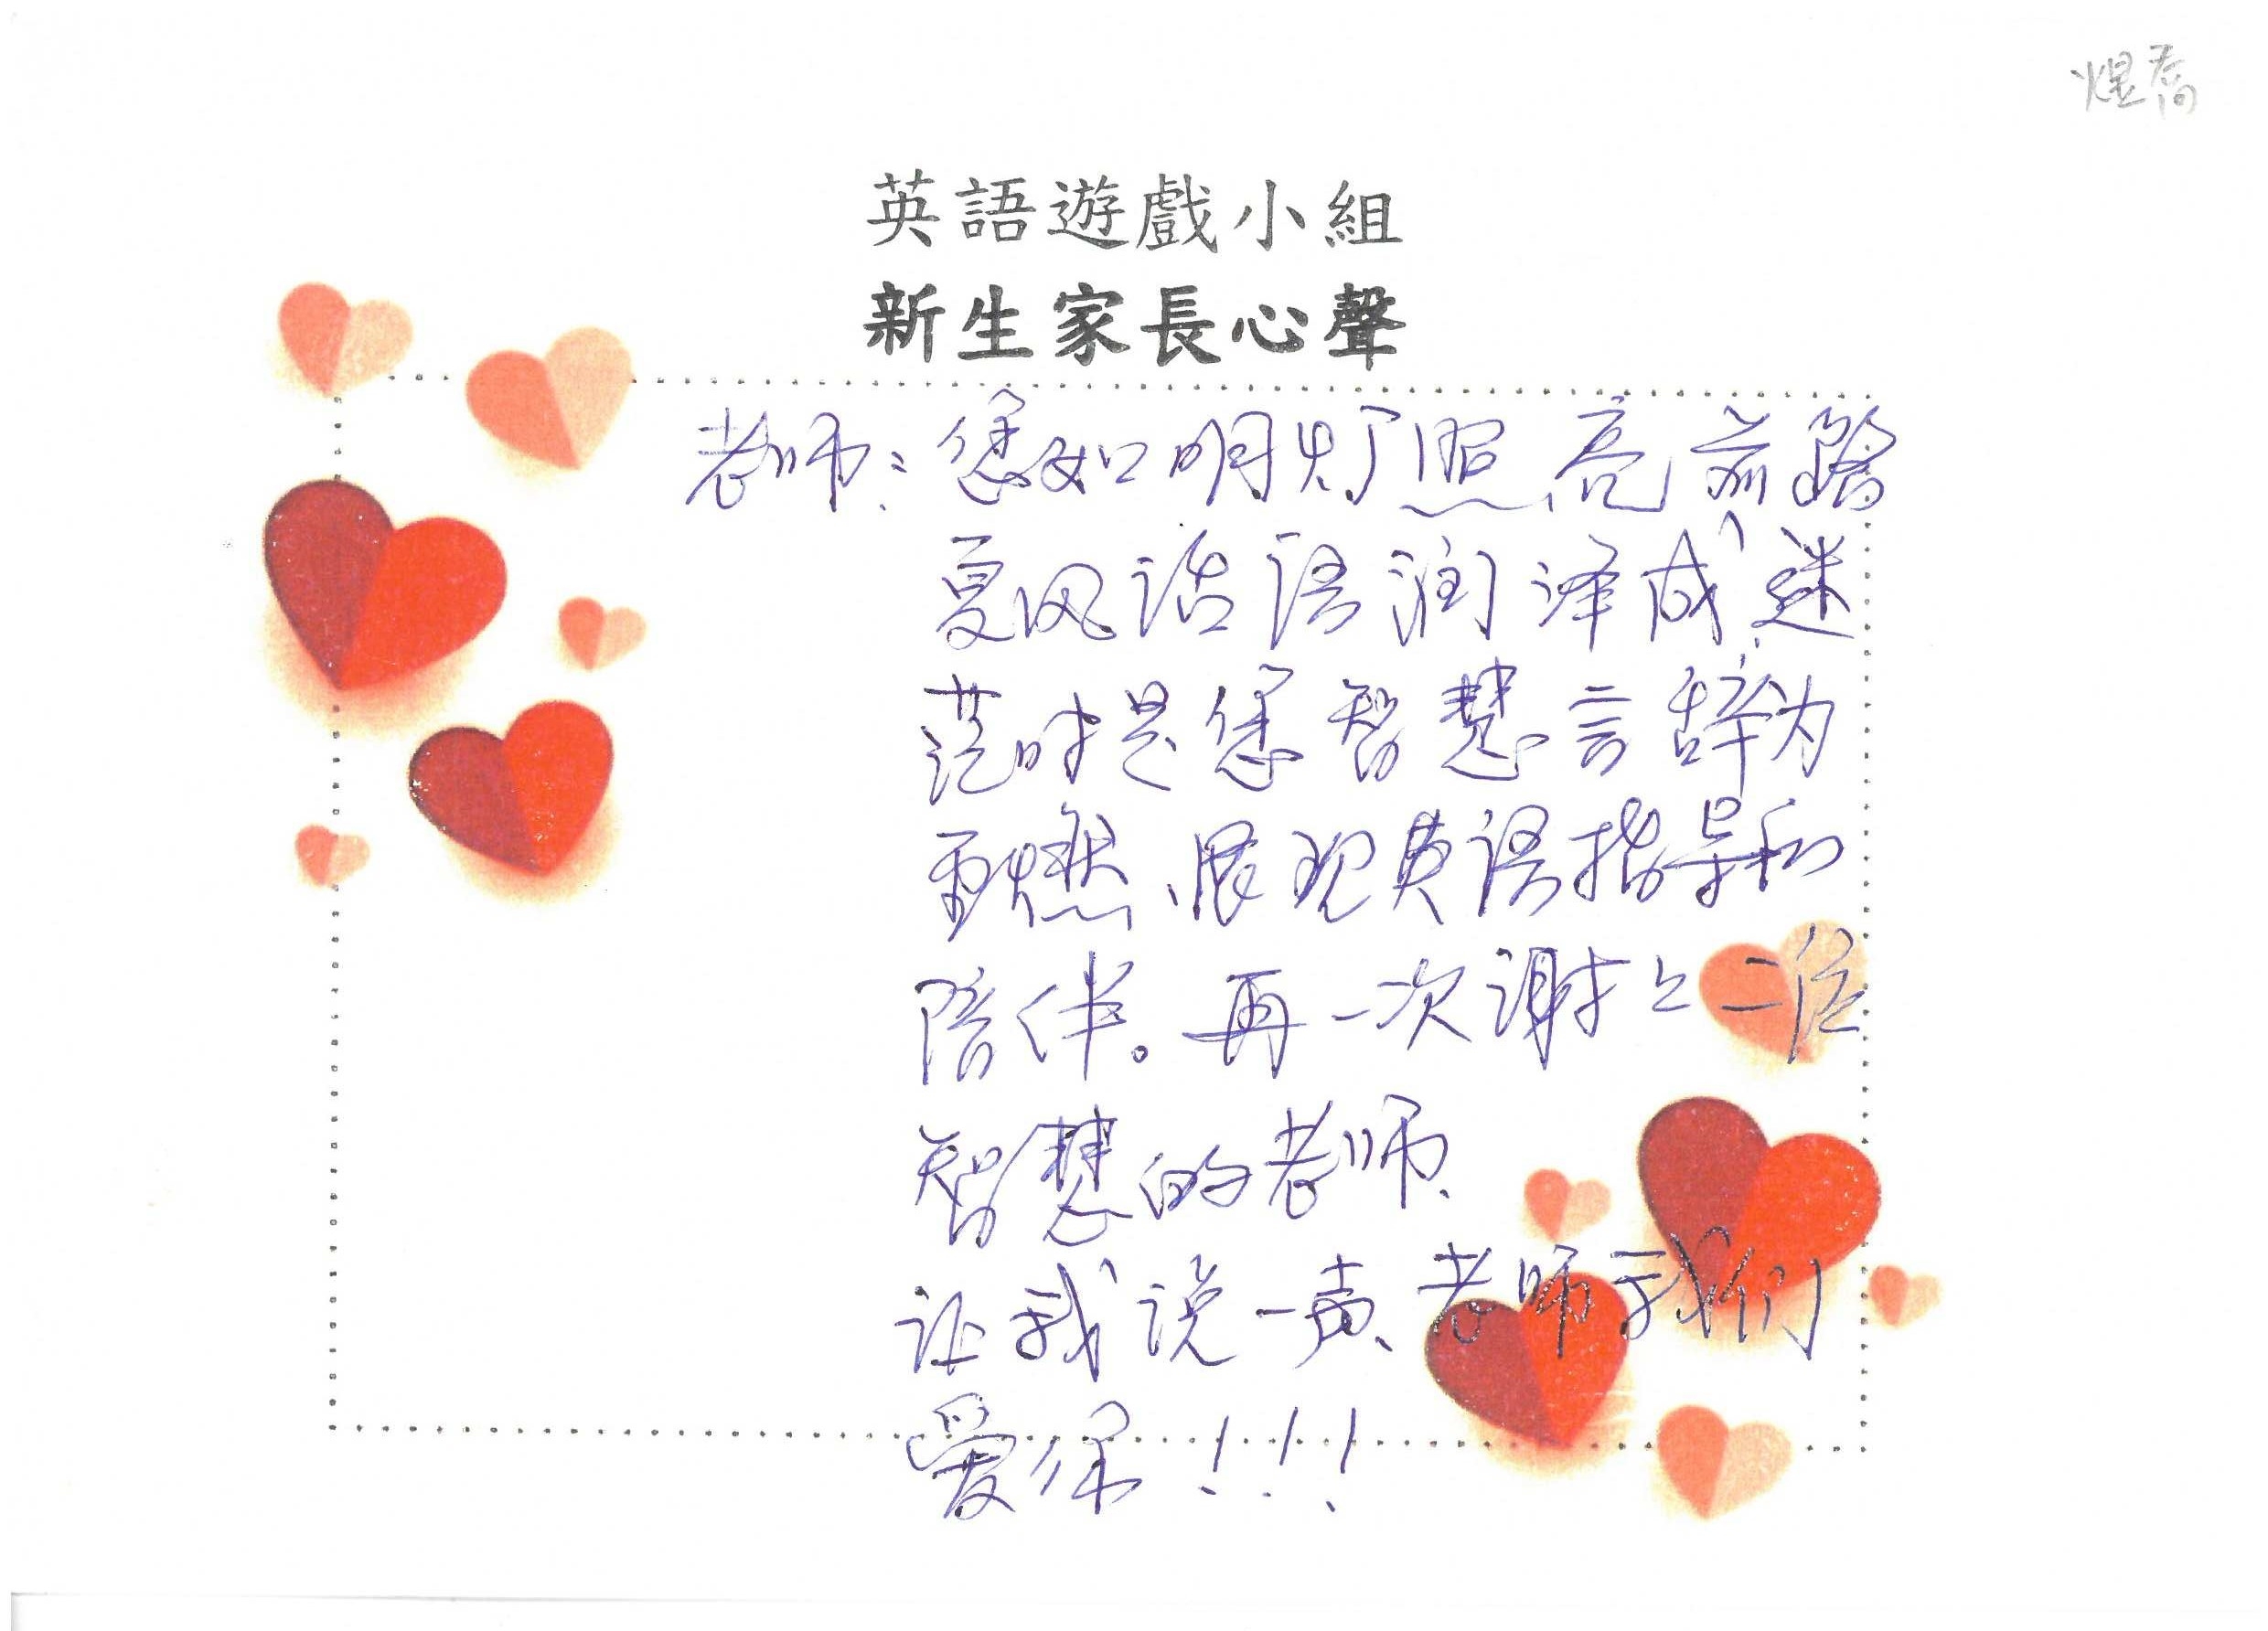 煜喬
英語遊戲小組
新生家長心聲
老师：您如明灯照亮前路
夏风话语润泽成迷
茫时是您智慧言辞为
燃、展现英语指导和
陪伴。再一次谢才上二位
智慧的老师、
让我说一声、老师我们
爱你！！！